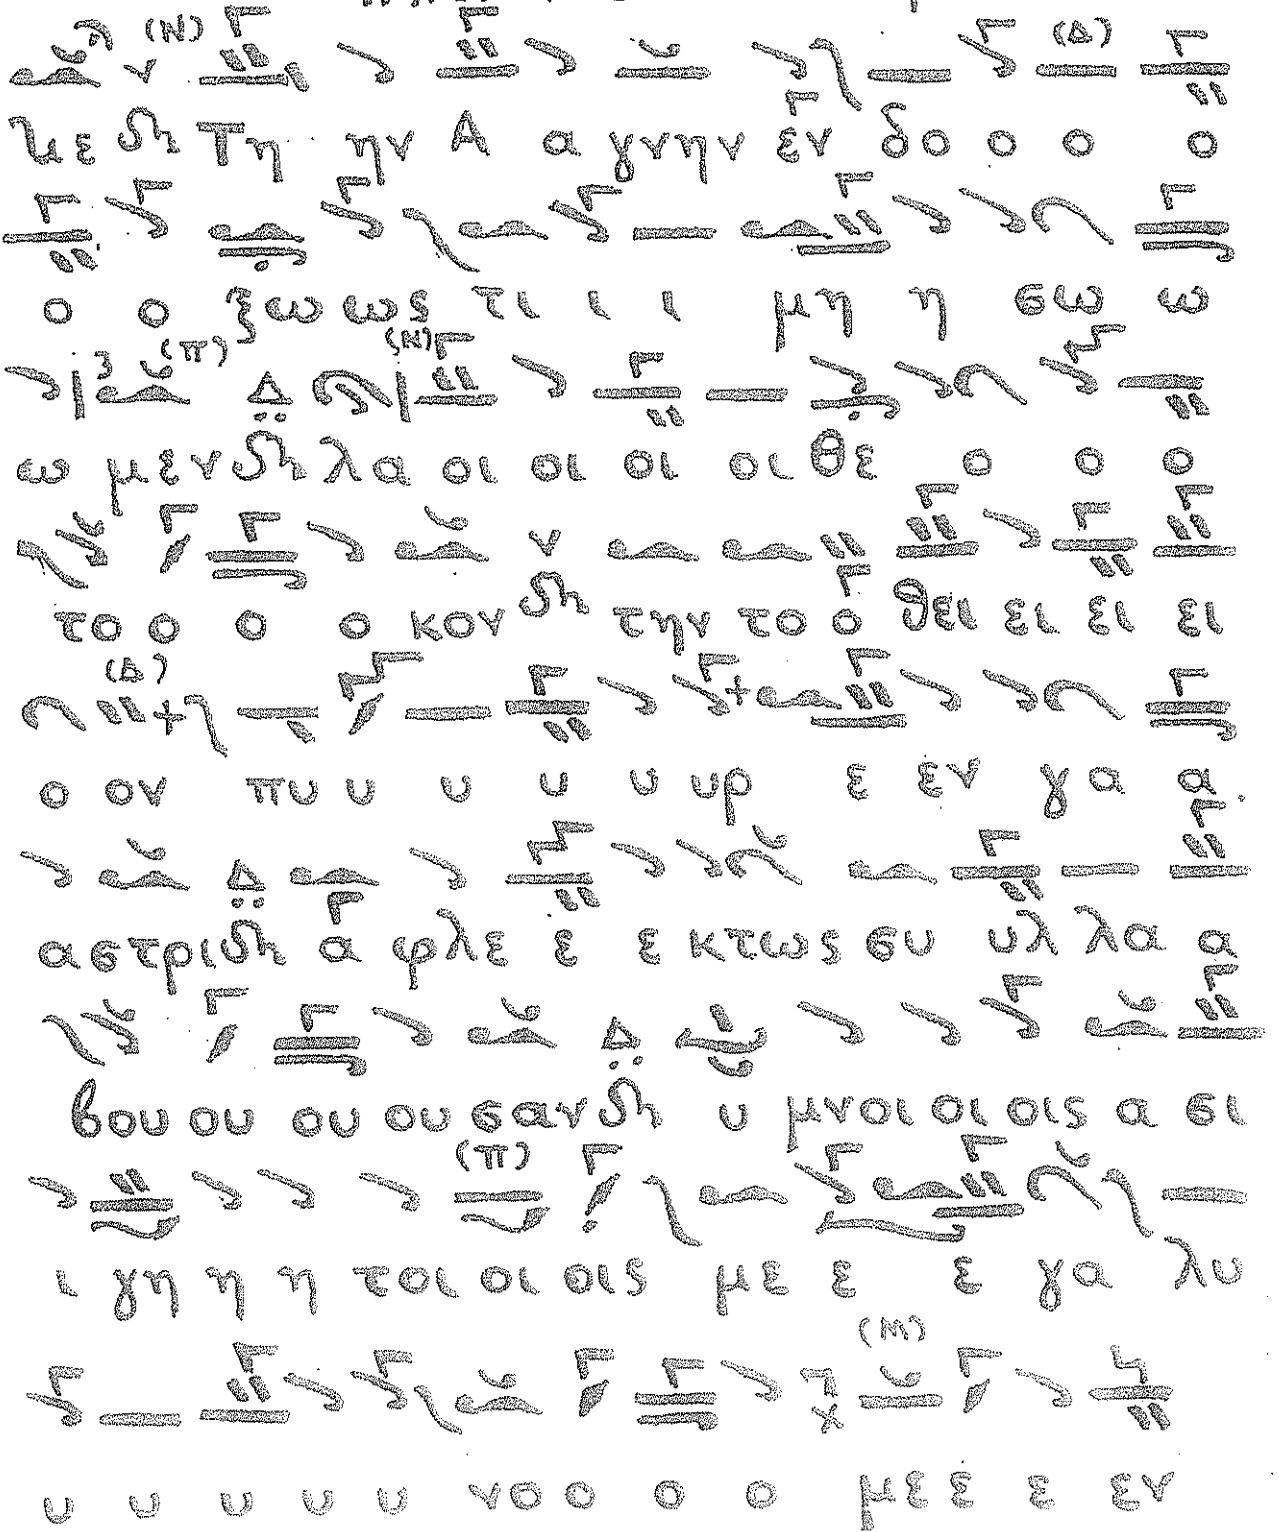 κε δη Τη ην Α α γνην εν δο ο ο ο
ο ο ξω ως τι ι ι μη η σω ω
ω μεν δη λα οι οι οι οι θε ο ο ο
το ο ο ο κον δη την το ο θει ει ει ει
ο ον πυ υ υ υ υ υρ ε εν γα α
α στρι δη α φλε ε ε κτως συ υλ λα α
βου ου ου ου σαν δη υ μνοι οι οις α σι
ι γη η η τοι οι οις με ε ε γα λυ
υ υ υ υ υ νο ο ο ο με ε ε εν